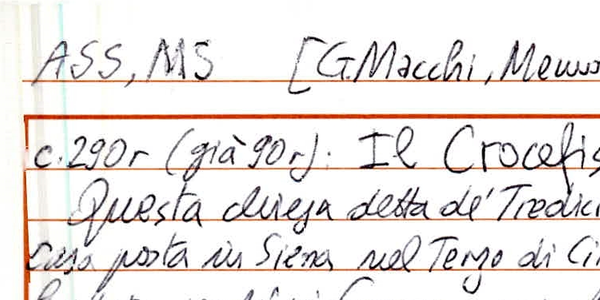 ASS, MS [G. Macchi, Memo
c. 290r (già 90r): Il Crocefis
Questa chiesa detta de' Tredici
casa posta in Siena nel Terzo di Ci